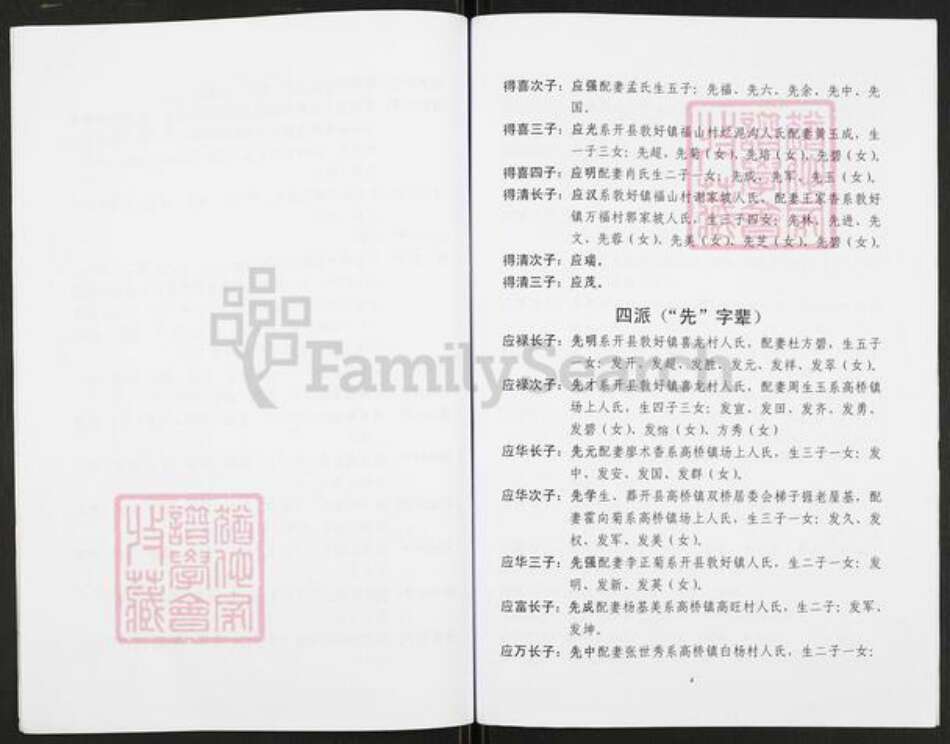 得喜次子：应强配妻孟氏生五子：先福、先六、先余、先中、先
国。
得喜三子：应光系开县敦好镇福山村烂泥沟人氏配妻黄玉成，生
一子三女：先超、先菊（女）、先培（女）、先碧（女）。
得喜四子：应明配妻肖氏生二子一女：先成、先军、先玉（女）。
得清长子：应汉系敦好镇福山村谢家坡人氏，配妻王家香系敦好
镇万福村郭家坡人氏，生三子四女：先林、先进、先
文、先蓉（女）、先美（女）、先芝（女）、先碧（女）。
得清次子：应瑞。
得清三子：应茂。
四派（“先”字辈）
应禄长子：先明系开县敦好镇喜龙村人氏，配妻杜方碧，生五子
一女：发开、发超、发胜、发元、发祥、发翠（女）。
应禄次子：先才系开县敦好镇喜龙村人氏，配妻周生玉系高桥镇
场上人氏，生四子三女：发宣、发田、发齐、发勇、
发碧（女）、发熔（女）、方秀（女）
应华长子：先元配妻廖术香系高桥镇场上人氏，生三子一女：发
中、发安、发国、发群（女）。
应华次子：先学生、葬开县高桥镇双桥居委会梯子垭老屋基，配
妻霍向菊系高桥镇场上人氏，生三子一女：发久、发
权、发军、发美（女）。
应华三子：先强配妻李正菊系开县敦好镇人氏，生二子一女：发
明、发新、发英（女）。
应富长子：先成配妻杨基美系高桥镇高旺村人氏，生二子：发军、
发坤。
应万长子：先中配妻张世秀系高桥镇白杨村人氏，生二子一女：
4
FamilySearch